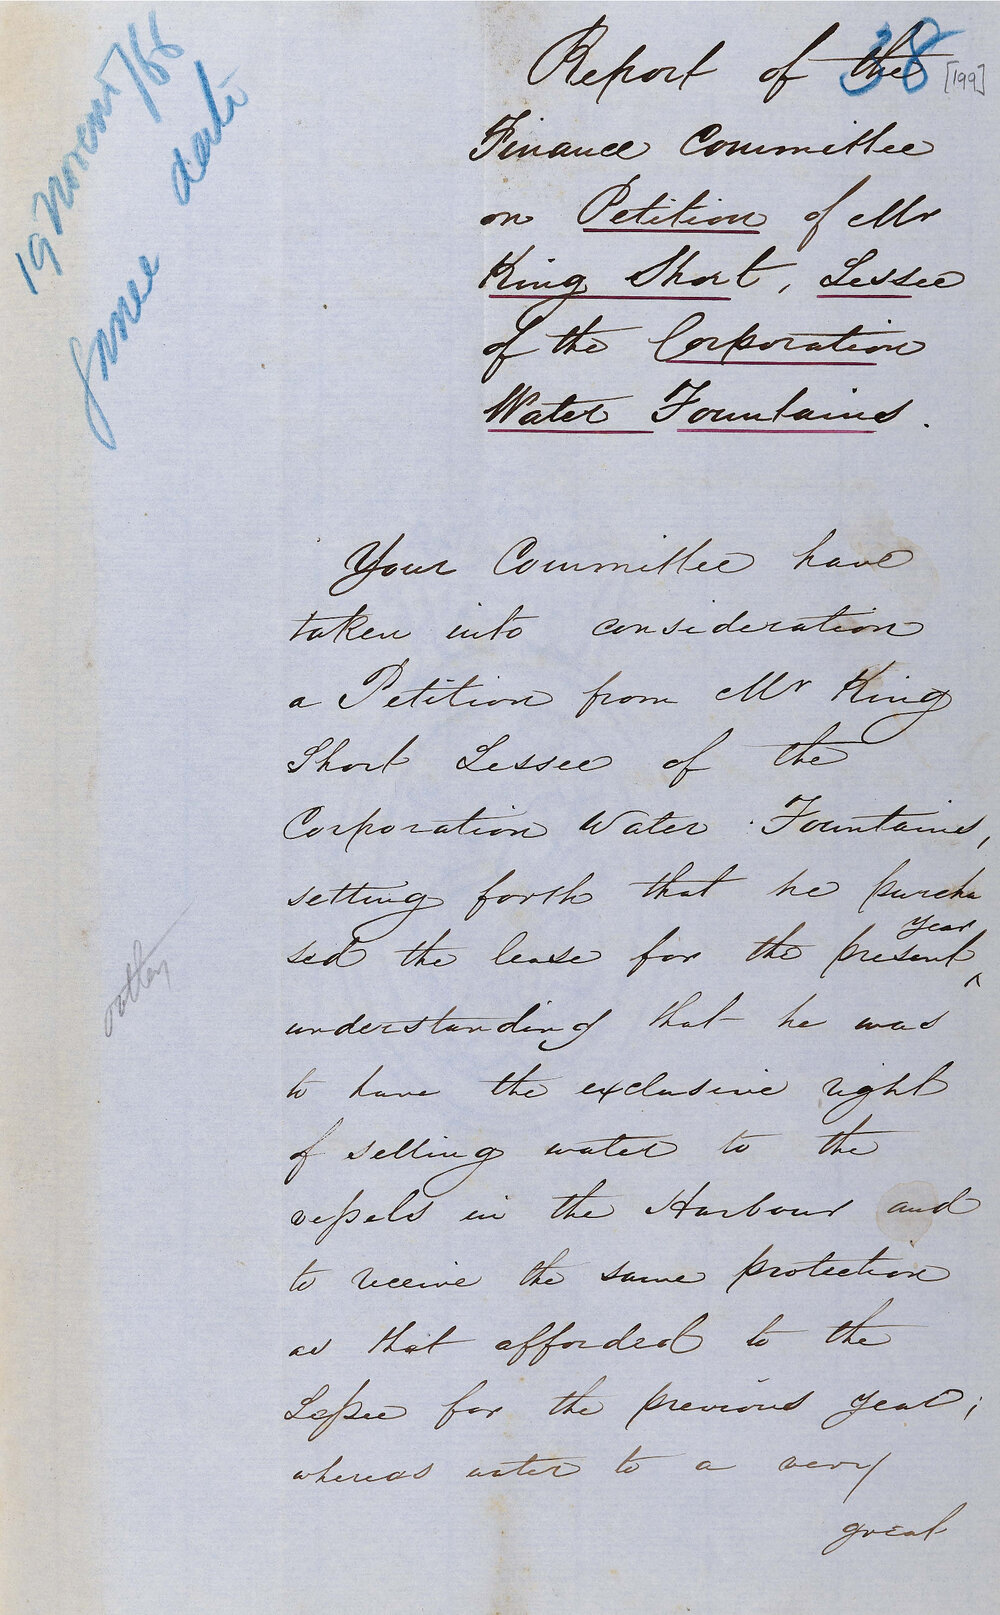 19 Novem /66
same date
38
[199]
Report of the
Finance Committee
on Petition of Mr
King Short, Lessee
of the Corporation
Water Fountains.
Your Committee have
taken into consideration
a Petition from Mr King
Short Lessee of the
Corporation Water Fountains,
setting forth that he purcha
year
sed the lease for the present ^
understanding that he was
to have the exclusive right
of selling water to the
vessels in the Harbour and
to receive the same protection
as that afforded to the
Lessee for the previous year;
whereas water to a very
great